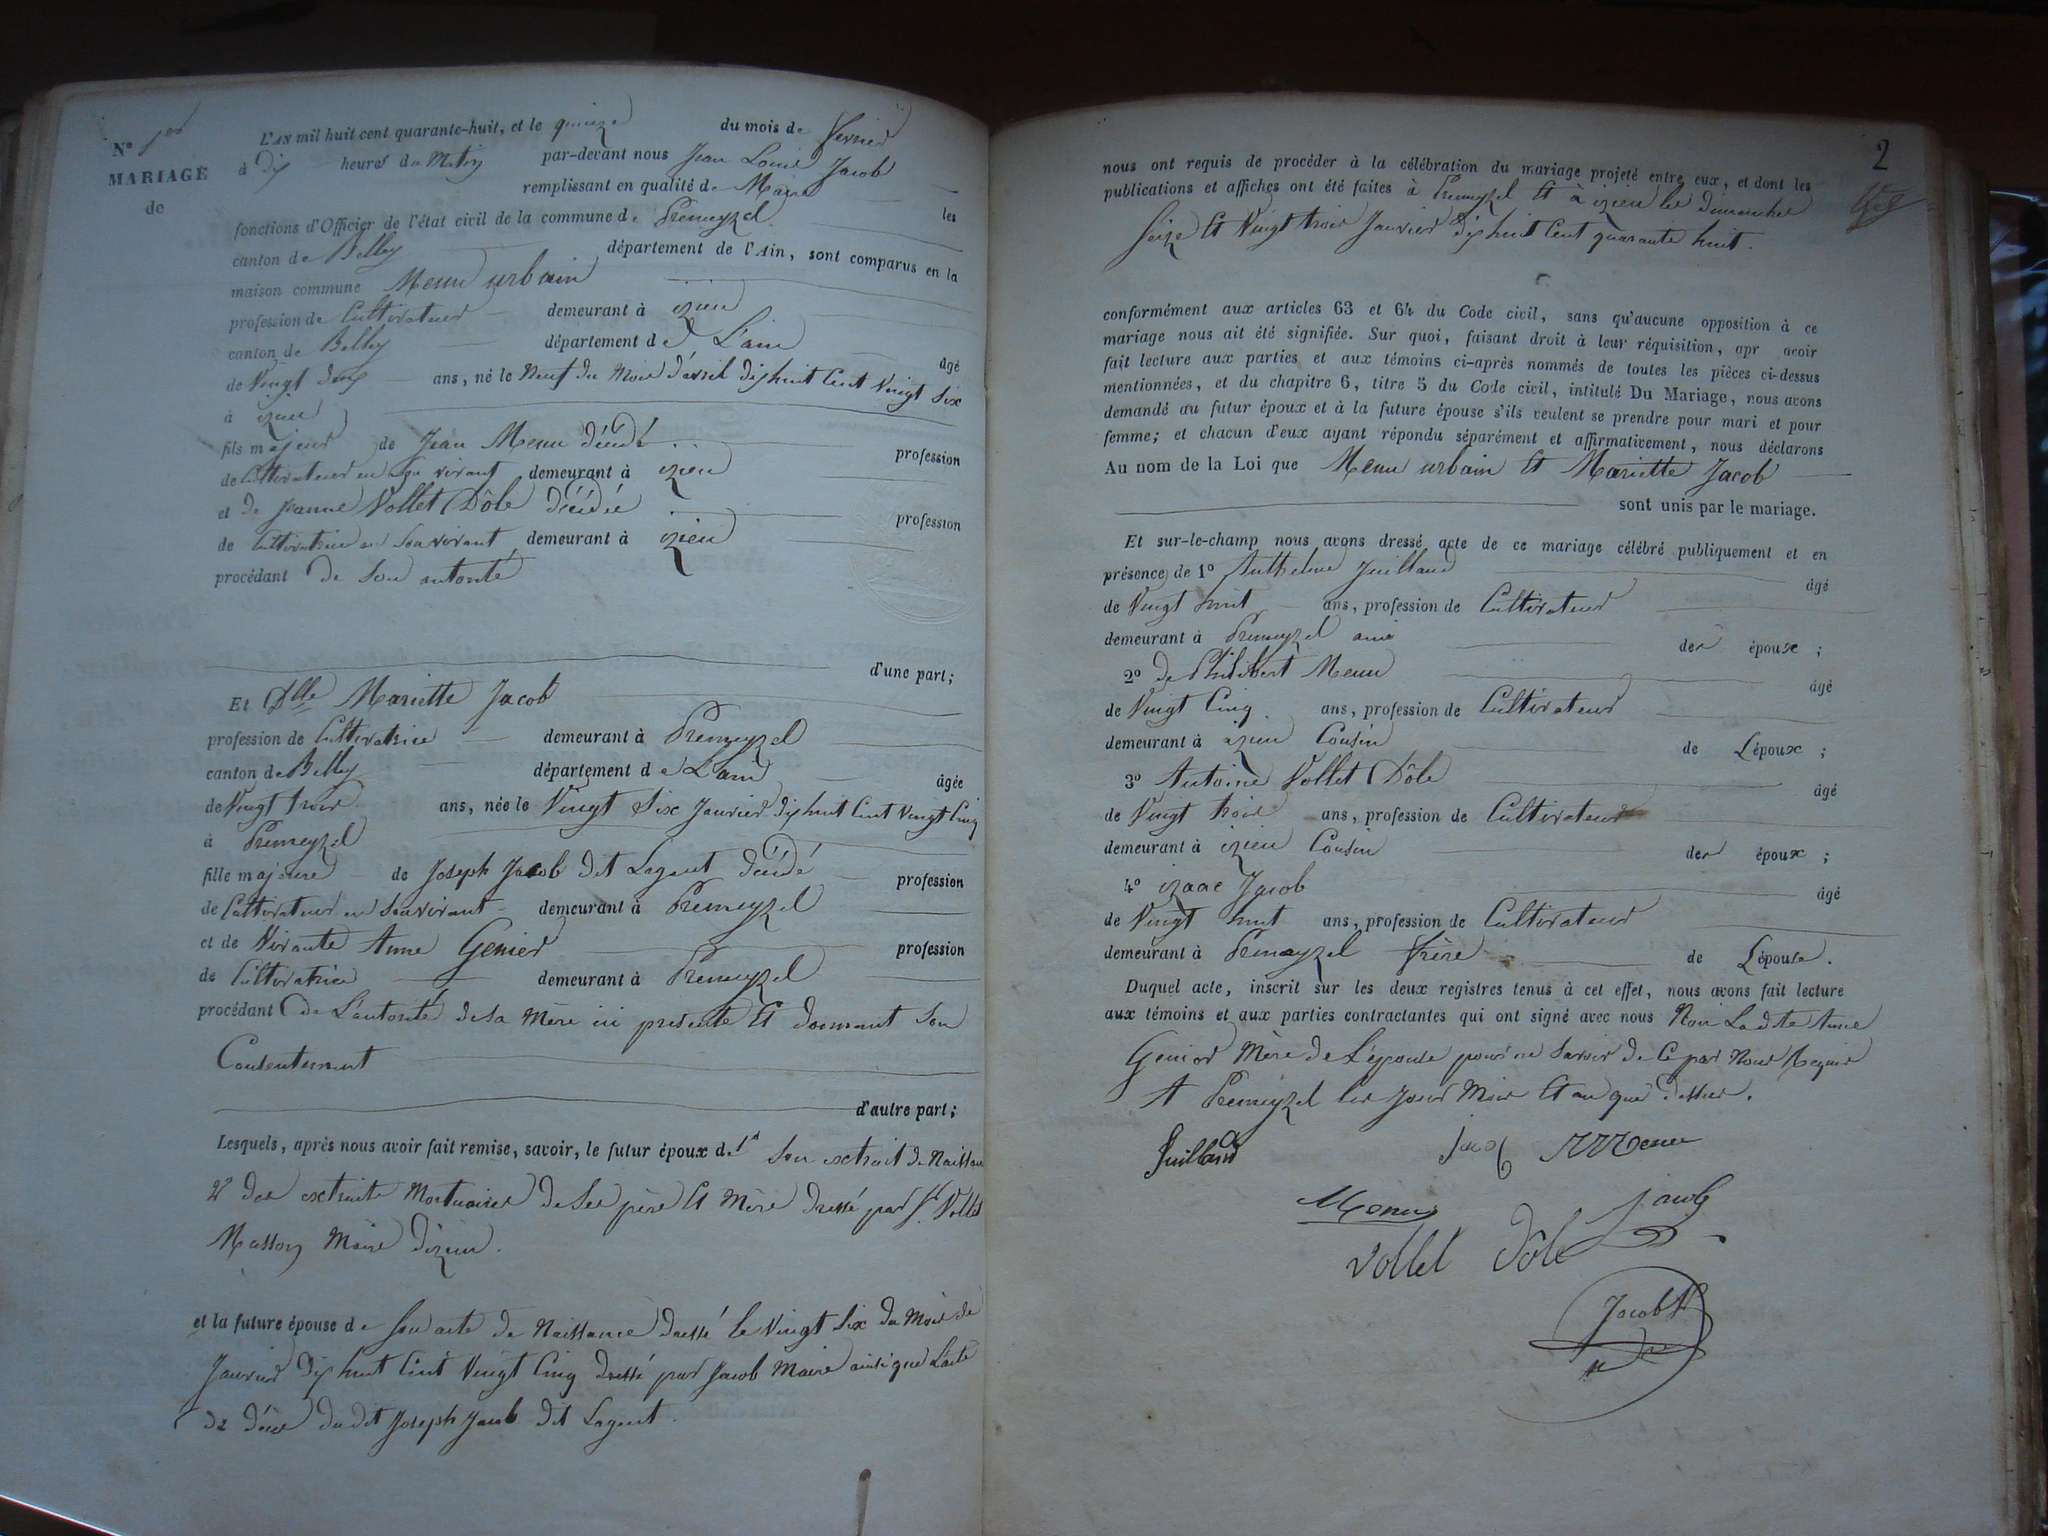 N° 1er
MARIAGE
de
L'AN mil huit cent quarante-huit, et le quinze du mois de fevrier
à dix heures du Matin par-devant nous Jean Louis Jacob
remplissant en qualité de Maire les
fonctions d'Officier de l'état civil de la commune de Premeyzel
canton de Belley département de l'Ain, sont comparus en la
maison commune Menu urbain
profession de Cultivateur demeurant à izieu
canton de Belley département de L'ain âgé
de Vingt deux ans, né le Neuf du Mois d'avril dix huit Cent Vingt Six
à izieu
fils majeur de Jean Menu décédé profession
de Cultivateur en son vivant demeurant à izieu
et de jeanne Vollet Dôle décédée profession
de Cultivatrice en Son vivant demeurant à izieu
procédant de Son autorité
d'une part;
Et Dlle Mariette Jacob
profession de Cultivatrice demeurant à Premeyzel
canton de Belley département de L'ain âgée
de Vingt trois ans, née le Vingt Six Janvier dix huit Cent Vingt Cinq
à Premeyzel
fille majeure de Joseph Jacob dit Lagent décédé profession
de Cultivateur en Son vivant demeurant à Premeyzel
et de Vivante Anne Genier profession
de Cultivatrice demeurant à Premeyzel
procédant de L'autorité de sa Mère ici presente Et donnant Son
Consentement
d'autre part;
Lesquels, après nous avoir fait remise, savoir, le futur époux de 1° Son extrait de Naissance
2° des extraits Mortuaires de Ses père Et Mère dressé par Sr Vollet
Masson Maire d'izieu.
et la future épouse de Son acte de Naissance dressé le Vingt Six du Mois de
Janvier dix huit Cent Vingt Cinq dressé par Jacob Maire ainsi que L'acte
de décé du dit Joseph Jacob dit Lagent.
2
nous ont requis de procéder à la célébration du mariage projeté entre eux, et dont les
publications et affiches ont été faites à Premeyzel Et à izieu les dimanches
Seize Et Vingt trois Janvier dix huit Cent quarante huit.
conformément aux articles 63 et 64 du Code civil, sans qu'aucune opposition à ce
mariage nous ait été signifiée. Sur quoi, faisant droit à leur réquisition, apr avoir
fait lecture aux parties et aux témoins ci-après nommés de toutes les pièces ci-dessus
mentionnées, et du chapitre 6, titre 5 du Code civil, intitulé Du Mariage, nous avons
demandé au futur époux et à la future épouse s'ils veulent se prendre pour mari et pour
femme; et chacun d'eux ayant répondu séparément et affirmativement, nous déclarons
Au nom de la Loi que Menu urbain Et Mariette Jacob
sont unis par le mariage.
Et sur-le-champ nous avons dressé acte de ce mariage célébré publiquement et en
présence de 1° Anthelme Juilland âgé
de Vingt huit ans, profession de Cultivateur
demeurant à Premeyzel ami des époux;
2° de Philibert Menu âgé
de Vingt Cinq ans, profession de Cultivateur
demeurant à izieu Cousin de L'époux;
3° Antoine Vollet Dôle âgé
de Vingt trois ans, profession de Cultivateur
demeurant à izieu Cousin des époux;
4° izaac Jacob âgé
de Vingt huit ans, profession de Cultivateur
demeurant à Premeyzel frère de L'épouse.
Duquel acte, inscrit sur les deux registres tenus à cet effet, nous avons fait lecture
aux témoins et aux parties contractantes qui ont signé avec nous Non Ladite Anne
Genier Mère de L'épouse pour ne Savoir de Ce par Nous Requis
A Premeyzel les Jour Mois Et an que dessus.
Juilland Jacob Menu
Menu Jacob
Vollet Dôle
Jacob